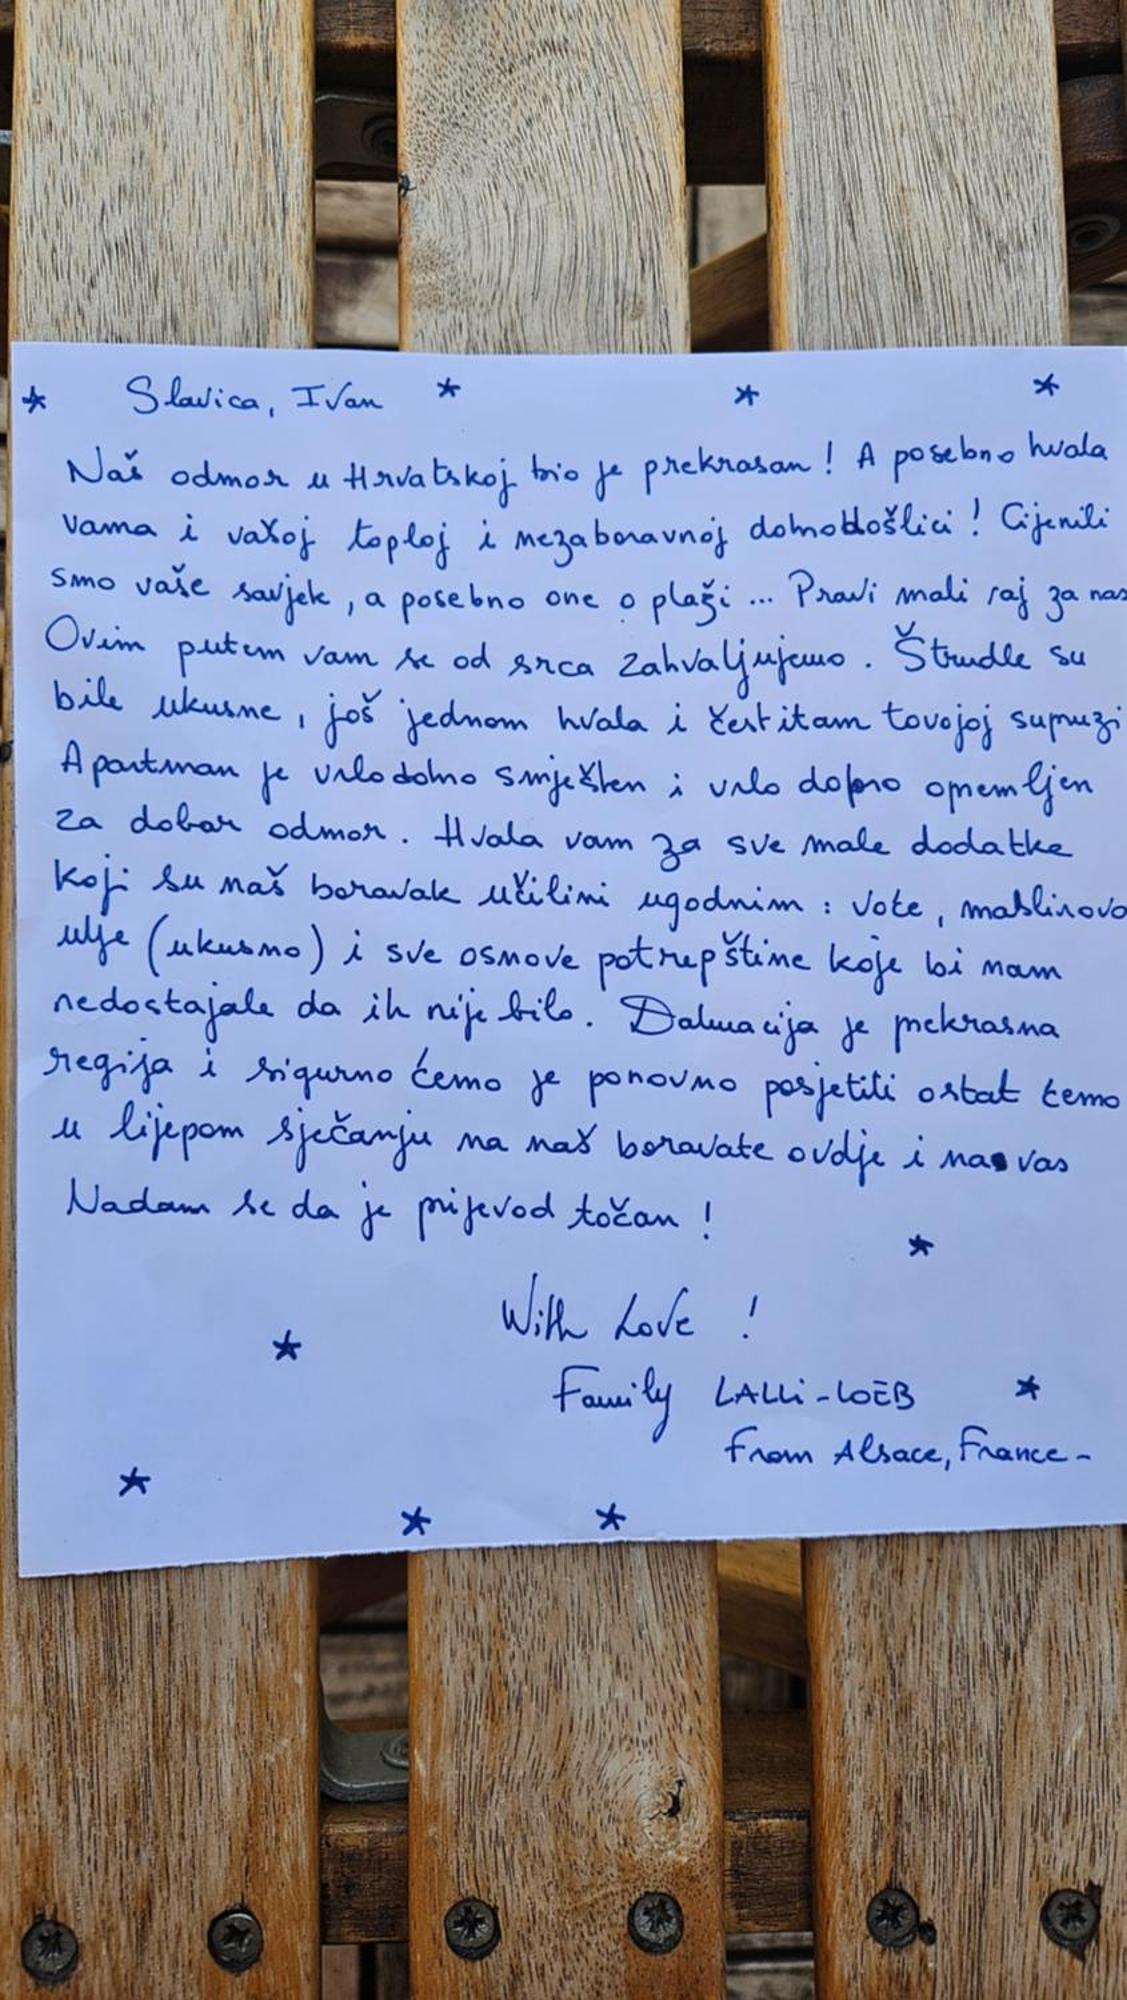 Slavica, Ivan
Naš odmor u Hrvatskoj bio je prekrasan ! A posebno hvala
vama i vašoj toploj i nezaboravnoj dobrodošlici ! Cijenili
smo vaše savjek, a posebno one o plaži ... Pravi mali raj za nas
Ovim putem vam se od srca zahvaljujemo . Štrudle su
bile ukusne, još jednom hvala i čestitam tovojoj supruzi
Apartman je vrlo dobro smješten i vrlo dobro opremljen
za dobar odmor . Hvala vam za sve male dodatke
koji su naš boravak učilini ugodnim : vote, maslinovo
ulje (ukusno) i sve osnove potrepštine koje bi nam
nedostajale da ih nije bilo . Dalmacija je prekrasna
regija i sigurno ćemo je ponovno posjetiti ostat ćemo
u lijepom sječanju na naš boravate ovdje i na vas
Nadam se da je prijevod točan !
With Love !
Family LALLi-LOËB
From Alsace, France -